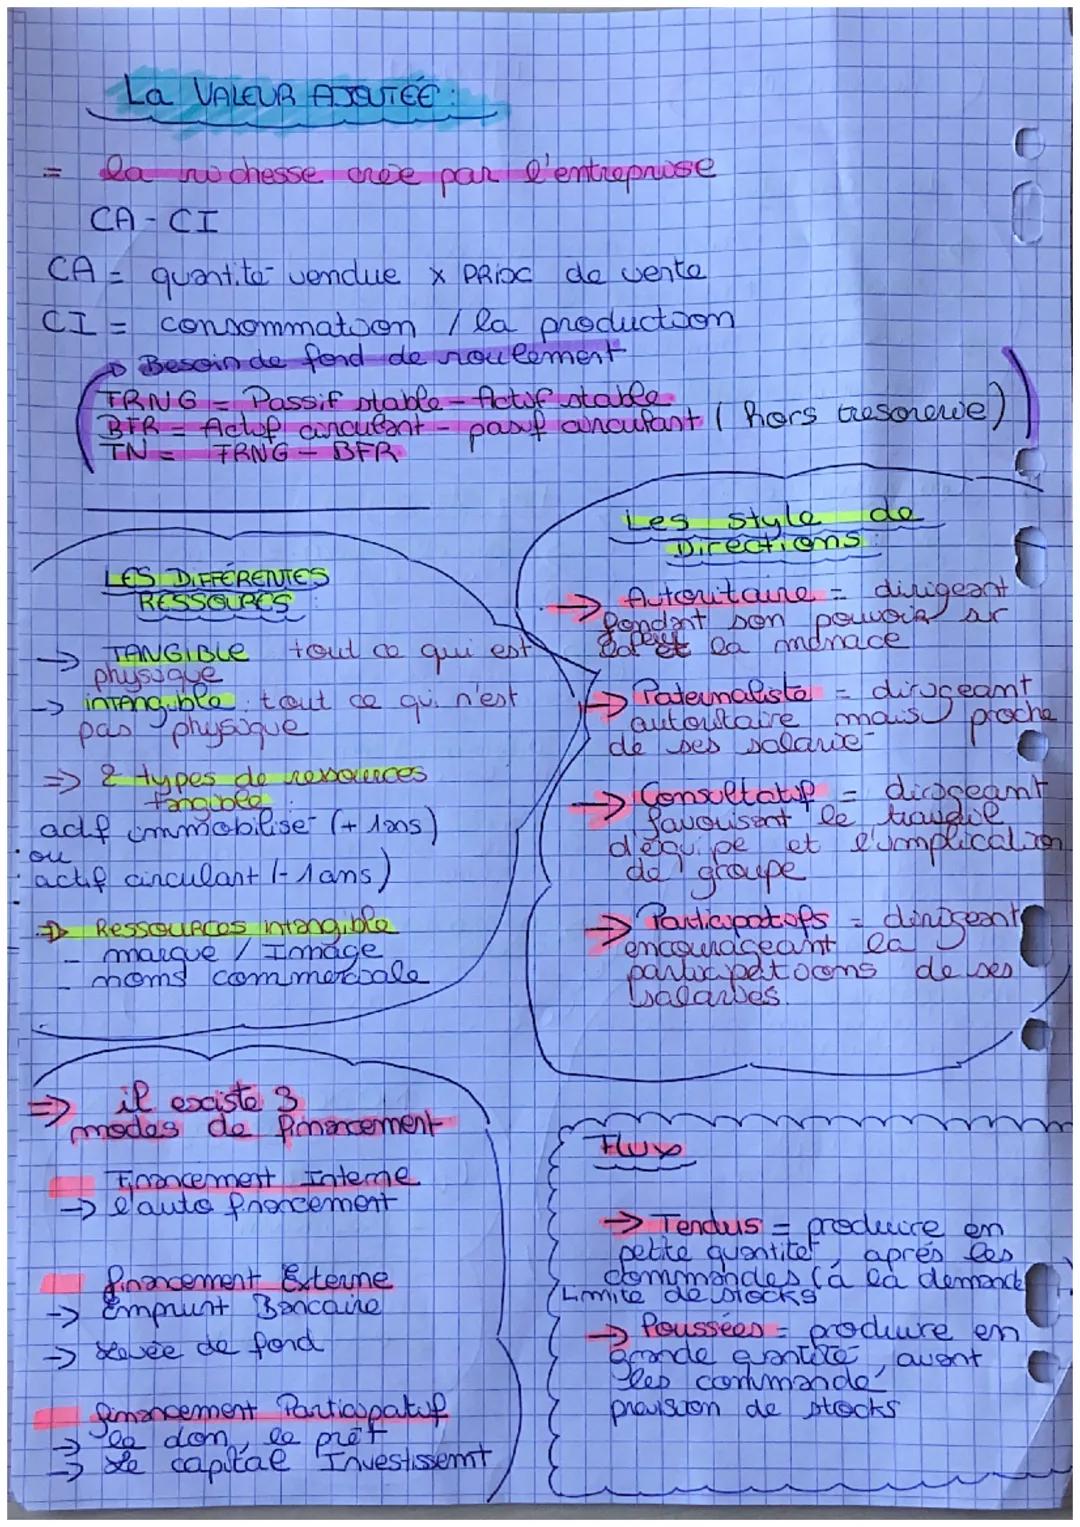 La VALEUR AJOUTÉE :
= la richesse crée par l'entreprise
CA - CI
CA = quantité vendue x PRix de vente
CI = consommation / la production
→ Besoin de fond de roulement
FRNG = Passif stable - Actif stable
BFR = Actif circulant - passif circulant ( hors tresorerie )
TN = FRNG - BFR
LES DIFFÉRENTES
RESSOURCES
→ TANGIBLE tout ce qui est
physique
→ intangible : tout ce qui n'est
pas physique
⇒ 2 types de ressources
tangible :
actif immobilisé (+ 1 ans)
ou
actif circulant (- 1 ans)
⇒ Ressources intangible
- marque / Image
- noms commerciale
Les style de
Directions :
→ Autoritaire = dirigeant
fondant son pouvoir sr
la peur et la menace
→ Paternaliste = dirigeant
autoritaire mais proche
de ses salarié
→ Consultatif = dirigeant
favorisant le travail
d'équipe et l'implication
de groupe
→ Participatifs = dirigeant
encourageant la
participations de ses
salariés.
⇒ il existe 3
modes de financement
Financement Interne
→ l'auto financement
financement Externe
→ Emprunt Bancaire
→ levée de fond
financement Participatif
→ le don, le prêt
→ Le capital Investissemt
Flux
→ Tendus = produire en
petite quantité, après les
commandes (à la demande
Limite de stocks
→ Poussées = produire en
Grande quantité, avant
les commande
prevision de stocks